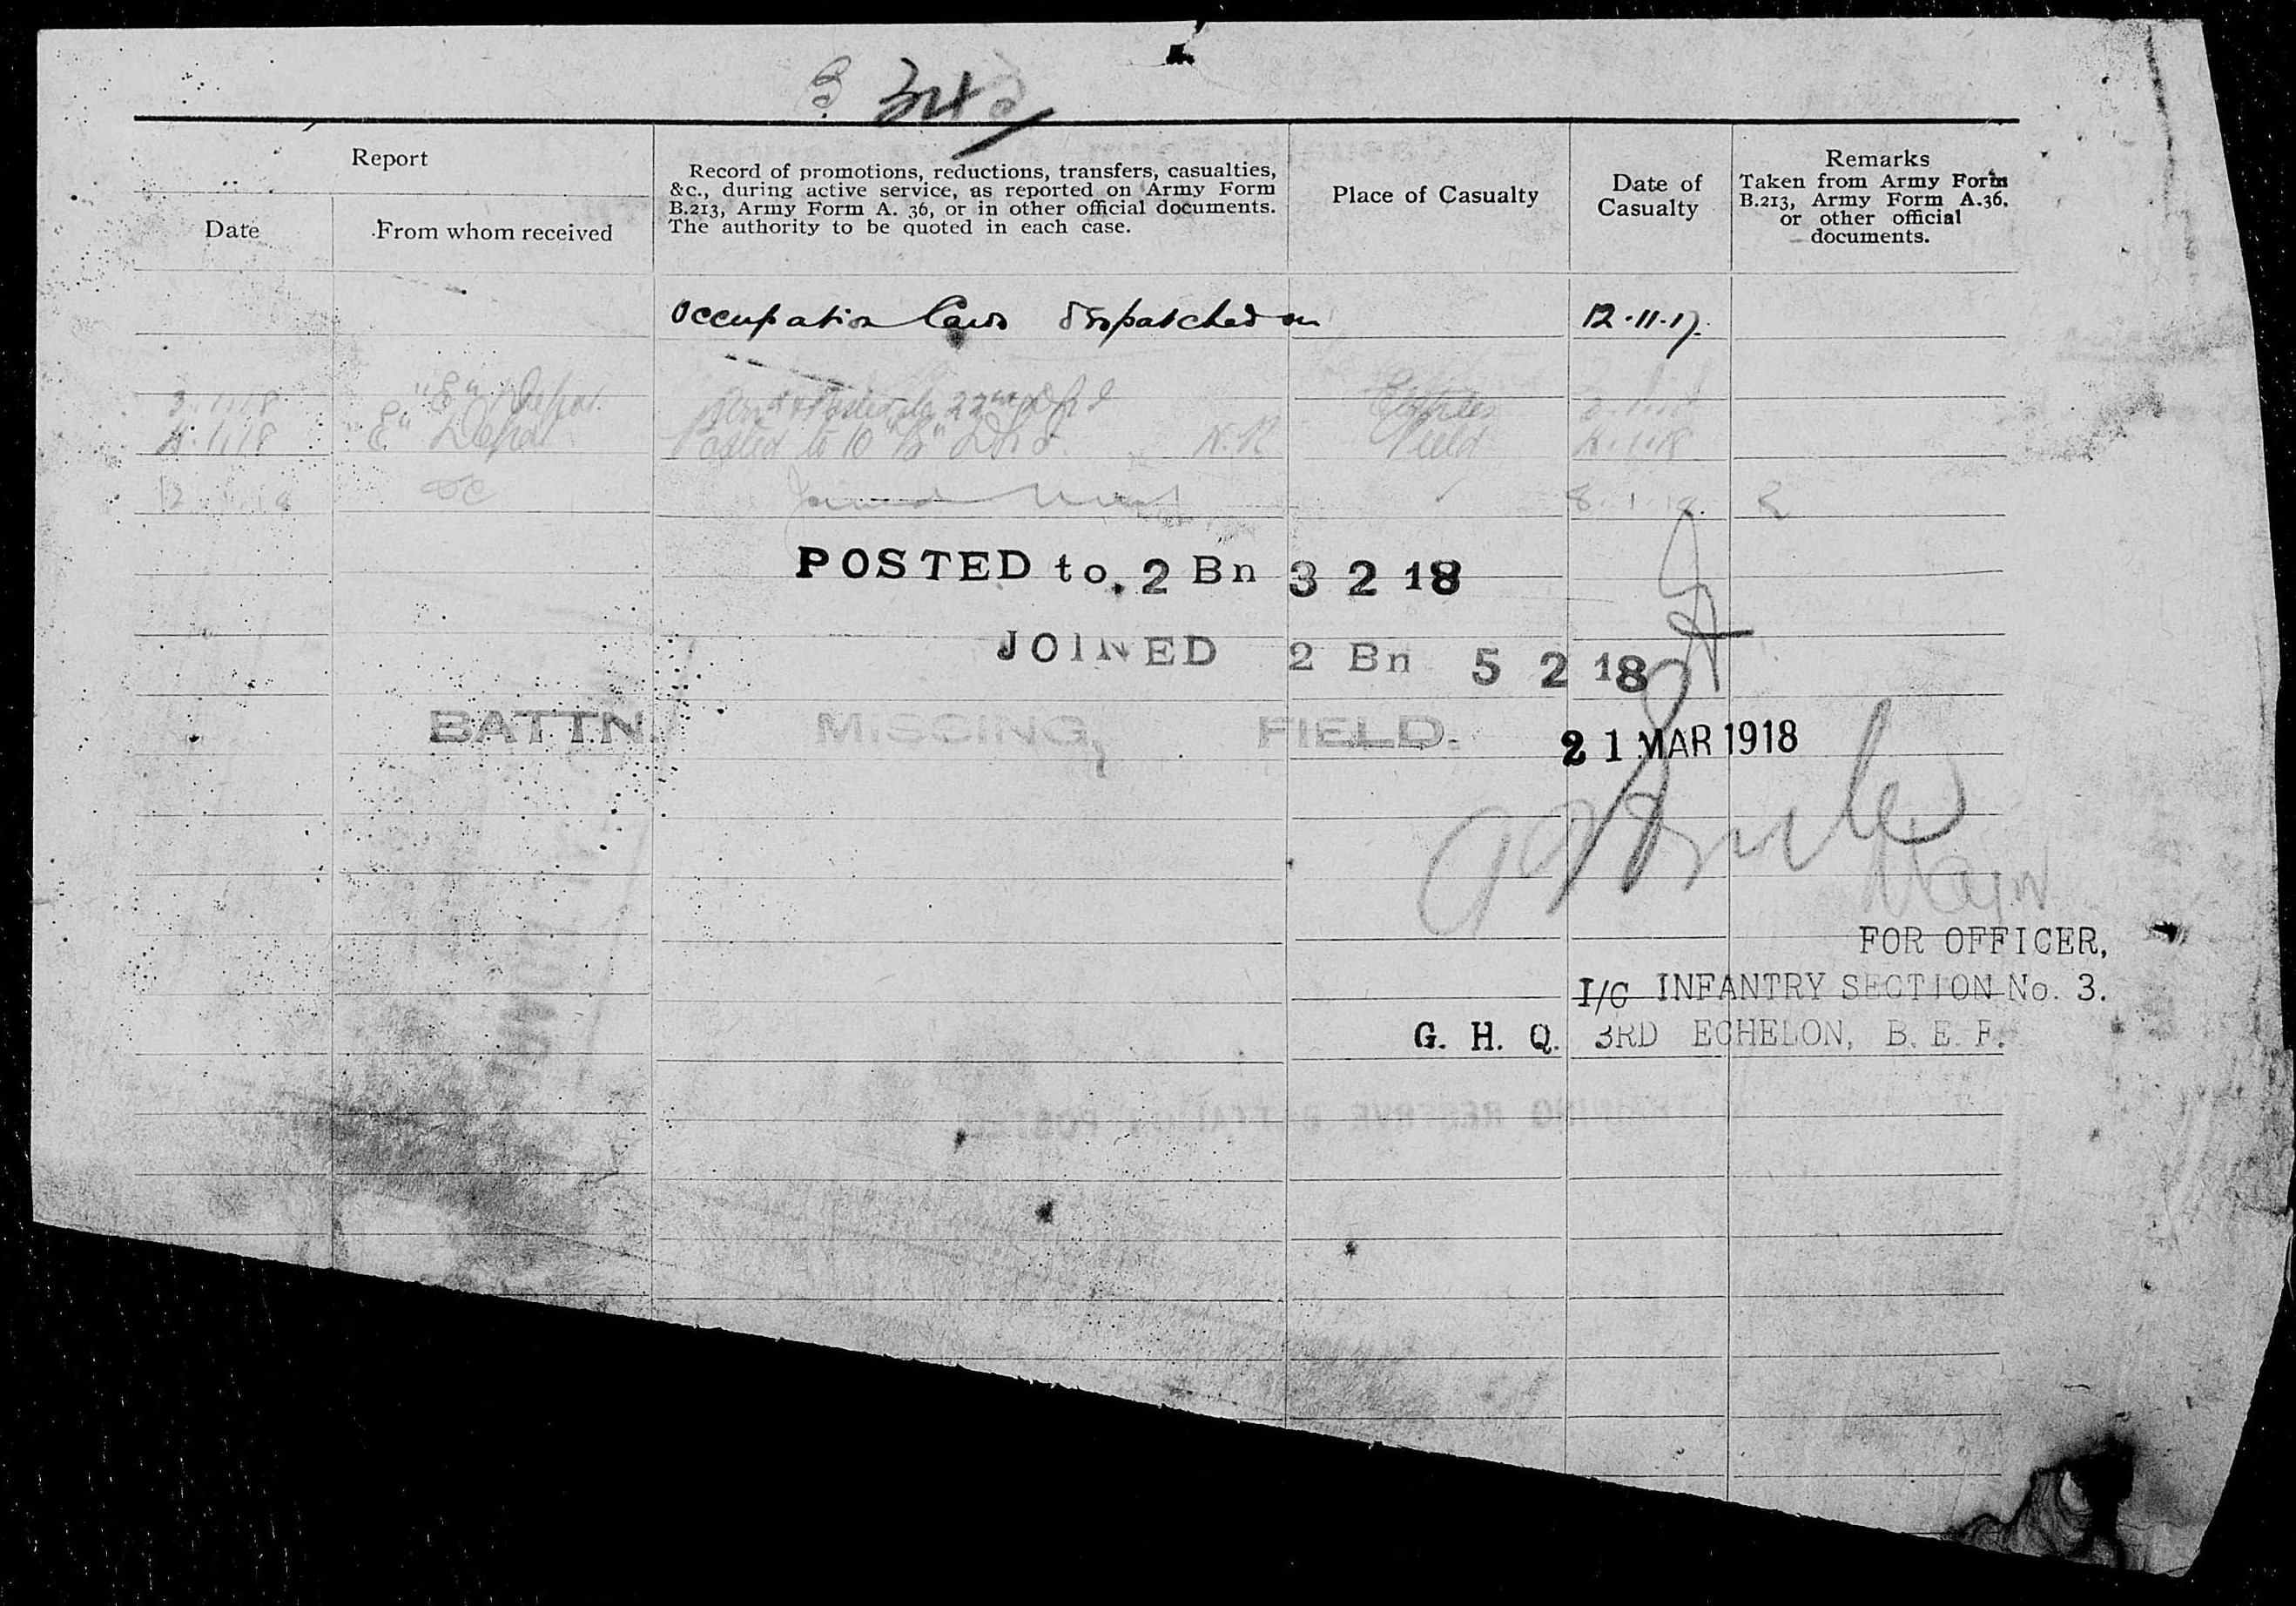 Report
Date
From whom received
Record of promotions, reductions, transfers, casualties,
&c., during active service, as reported on Army Form
B.213, Army Form A. 36, or in other official documents.
The authority to be quoted in each case.
Place of Casualty
Date of
Casualty
Remarks
Taken from Army Form
B.213, Army Form A.36,
or other official
documents.
Occupation Card dispatched on 12.11.17.
3.1.18 "E" Depot Posted to 22nd Etaples
4.1.18 "E" Depot Posted to 10 "B" N.R. Field 4.1.18
12.1.18 OC Joined 8.1.18
POSTED to. 2 Bn 3 2 18
JOINED 2 Bn 5 2 18
BATTN. MISSING, FIELD. 21 MAR 1918
Major
FOR OFFICER,
I/C INFANTRY SECTION No. 3.
G. H. Q. 3RD ECHELON, B. E. F.